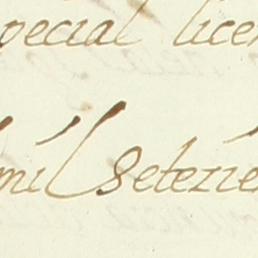 pecial licen
mil Setezie